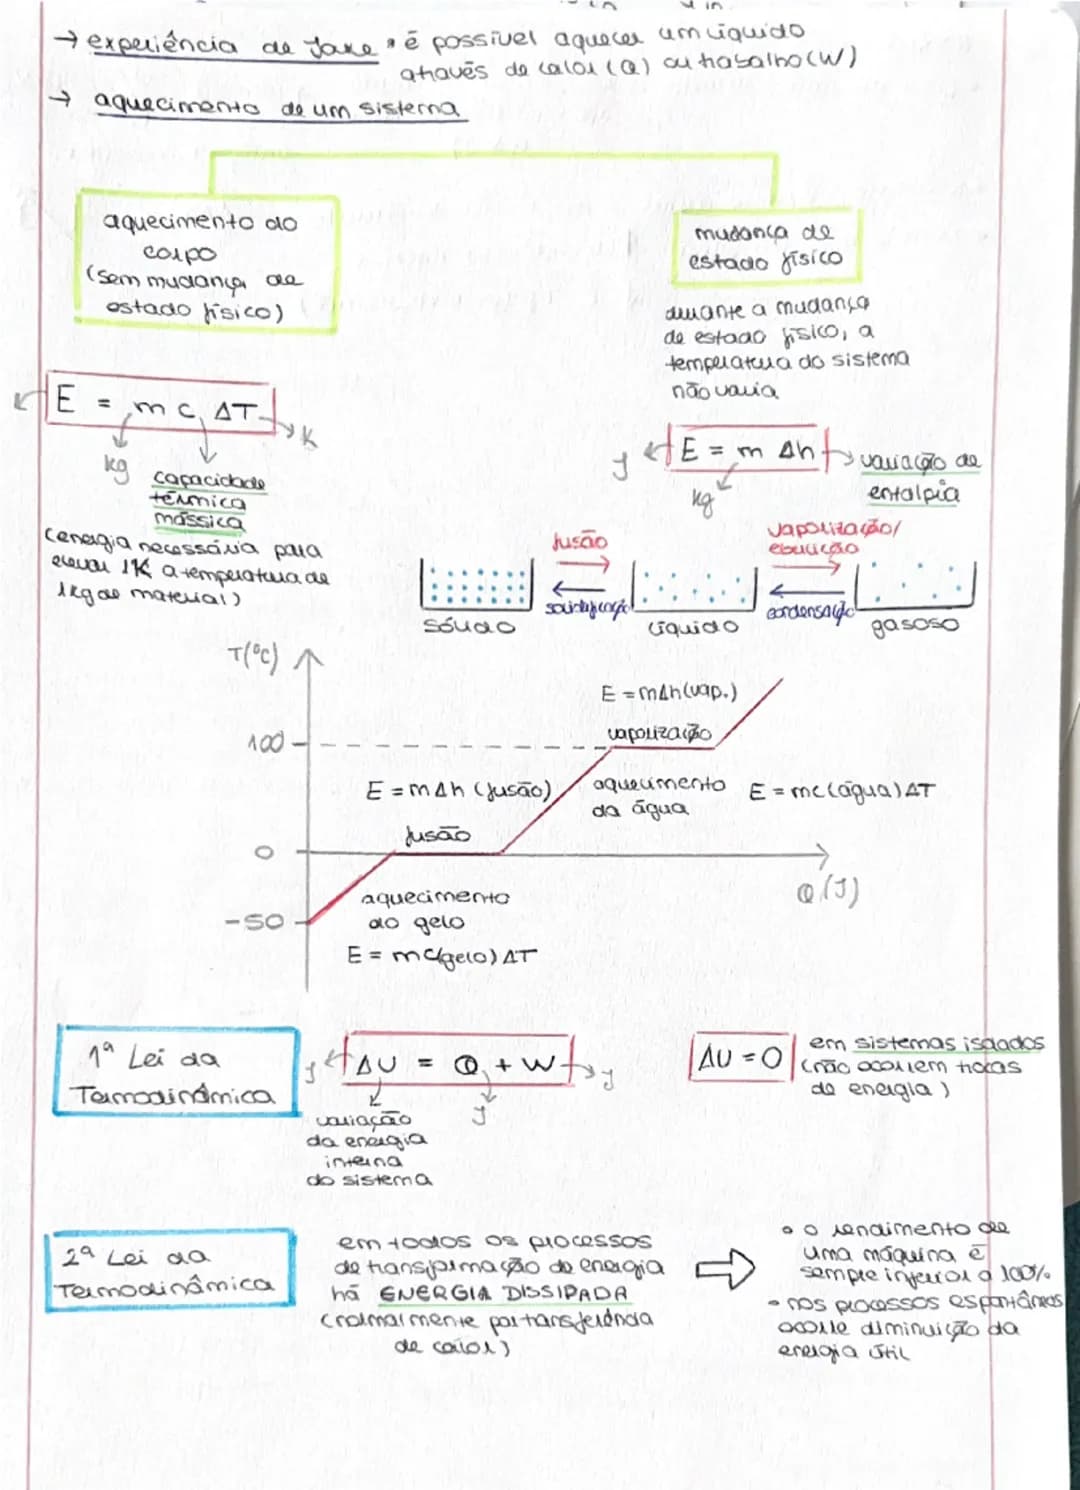 → experiência de Joule • é possível aquecer um líquido
através de calor (Q) ou trabalho (W)
→ aquecimento de um sistema
aquecimento do
corpo
(sem mudança de
estado físico)
mudança de
estado físico
durante a mudança
de estado físico, a
temperatura do sistema
não varia
E = m c ΔT → K
kg
capacidade
térmica
mássica
(energia necessária para
elevar 1K a temperatura de
1kg de material)
J
E = m Δh → variação de
entalpia
kg
fusão
solidificação
vaporização/
ebulição
condensação
sólido
líquido
gasoso
T(ºC)
E = mΔh (vap.)
vaporização
100
E = mΔh (fusão)
aquecimento
da água
E = mc(água)ΔT
fusão
0
Q (J)
aquecimento
do gelo
-50
E = mc(gelo) ΔT
1ª Lei da
Termodinâmica
J ΔU = Q + W J
J
variação
da energia
interna
do sistema
ΔU = 0
em sistemas isolados
(não ocorrem trocas
de energia)
2ª Lei da
Termodinâmica
em todos os processos
de transformação de energia
há ENERGIA DISSIPADA
(normalmente por transferência
de calor)
• o rendimento de
uma máquina é
sempre inferior a 100%
• nos processos espontâneos
ocorre diminuição da
energia útil